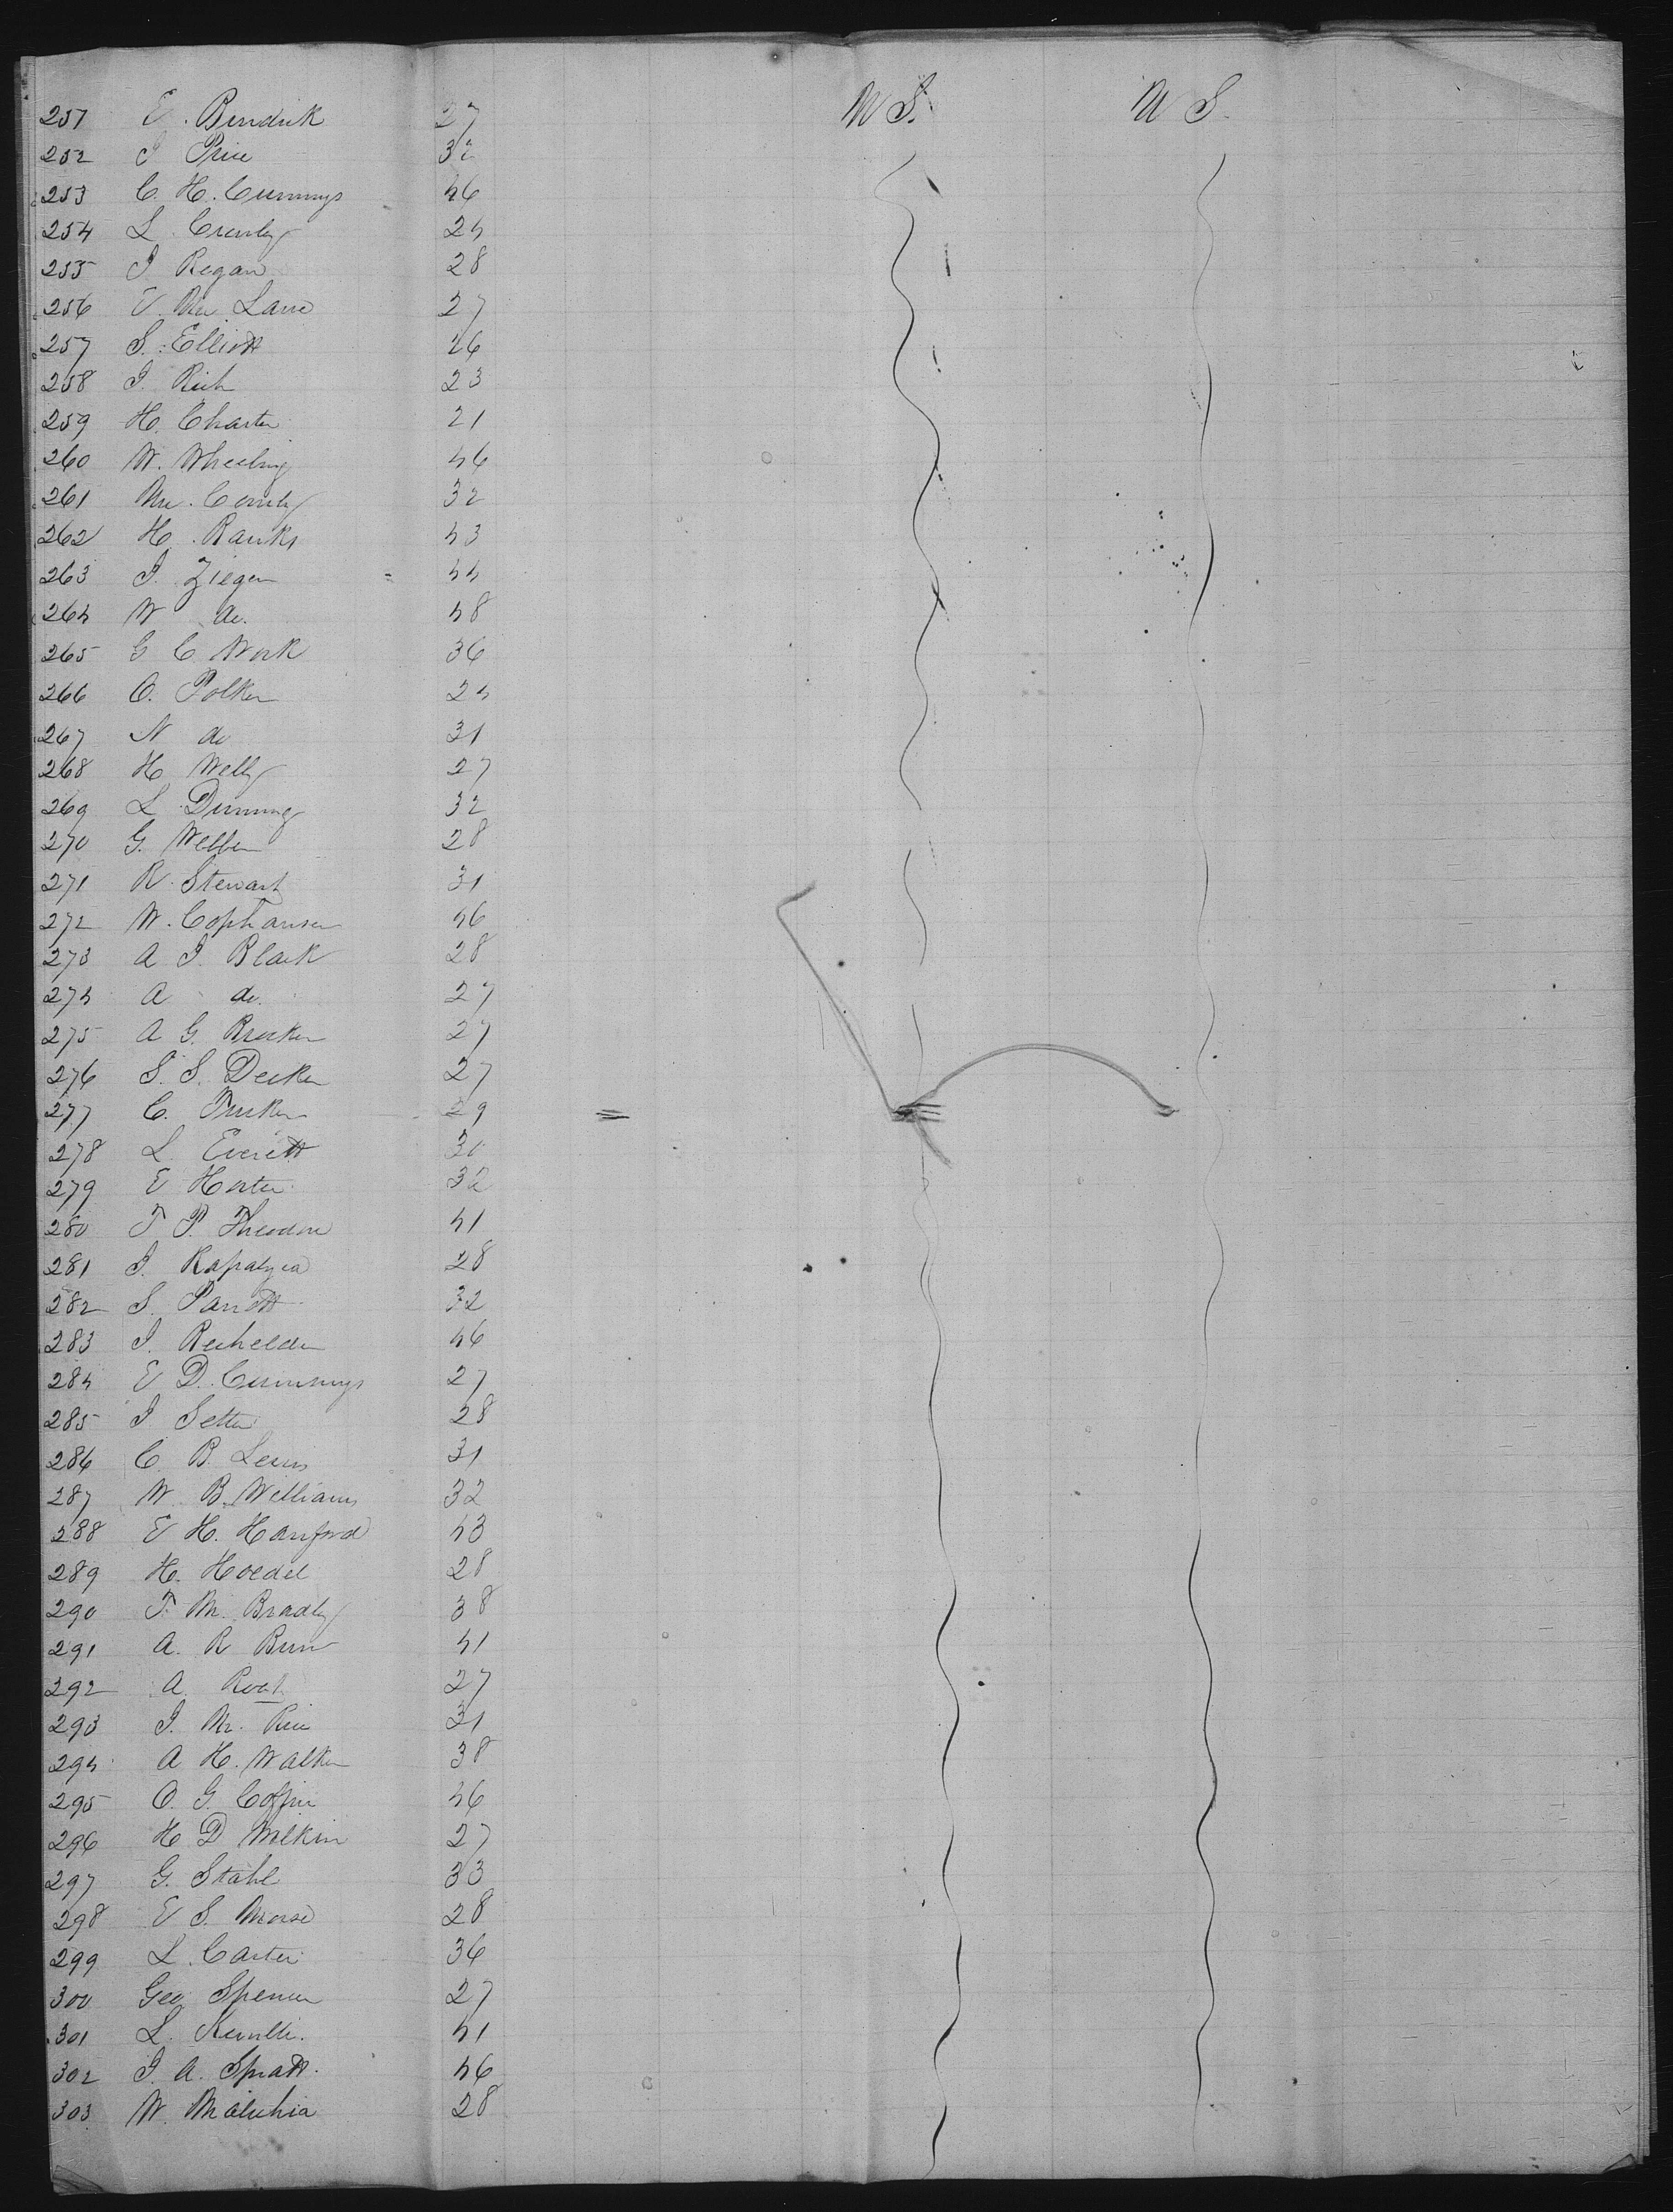 U S. U S.
251 E. Bendick 27
252 J Price 32
253 C. H. Cummys 46
254 L. Crowley 24
255 J Regan 28
256 E. Mc Lane 27
257 S. Elliott 26
258 J. Rich 23
259 H. Charter 21
260 W. Wheeling 46
261 Mc. Comly 32
262 H. Banks 43
263 J. Zieger 44
264 W do. 48
265 G C Work 36
266 O. Polker 24
267 N do 31
268 H Welly 27
269 L Dunning 32
270 G. Webber 28
271 R. Stewart 31
272 W. Cophauser 46
273 A J. Black 28
274 A do. 27
275 A G. Brocker 27
276 S. S. Decker 27
277 C. Tucker 29
278 L. Everett 30
279 E Horter 32
280 T P. Theodore 41
281 J. Rapalyea 28
282 S. Parrott 32
283 J. Reichelder 46
284 E D. Cummys 27
285 J Setter 28
286 C B. Lewis 31
287 W. B. Williams 32
288 E H. Hanford 43
289 H. Hoedel 28
290 T. M. Bradly 38
291 A. R Bunn 41
292 A. Roat 27
293 J. M. Rice 31
294 A H. Walker 38
295 O. G. Coffin 46
296 H D Wilkin 27
297 G. Stahl 33
298 E S. Morse 28
299 L. Carter 36
300 Geo Spencer 27
301 L. 41
302 J. A. Spratt. 46
303 W. Maluhia 28